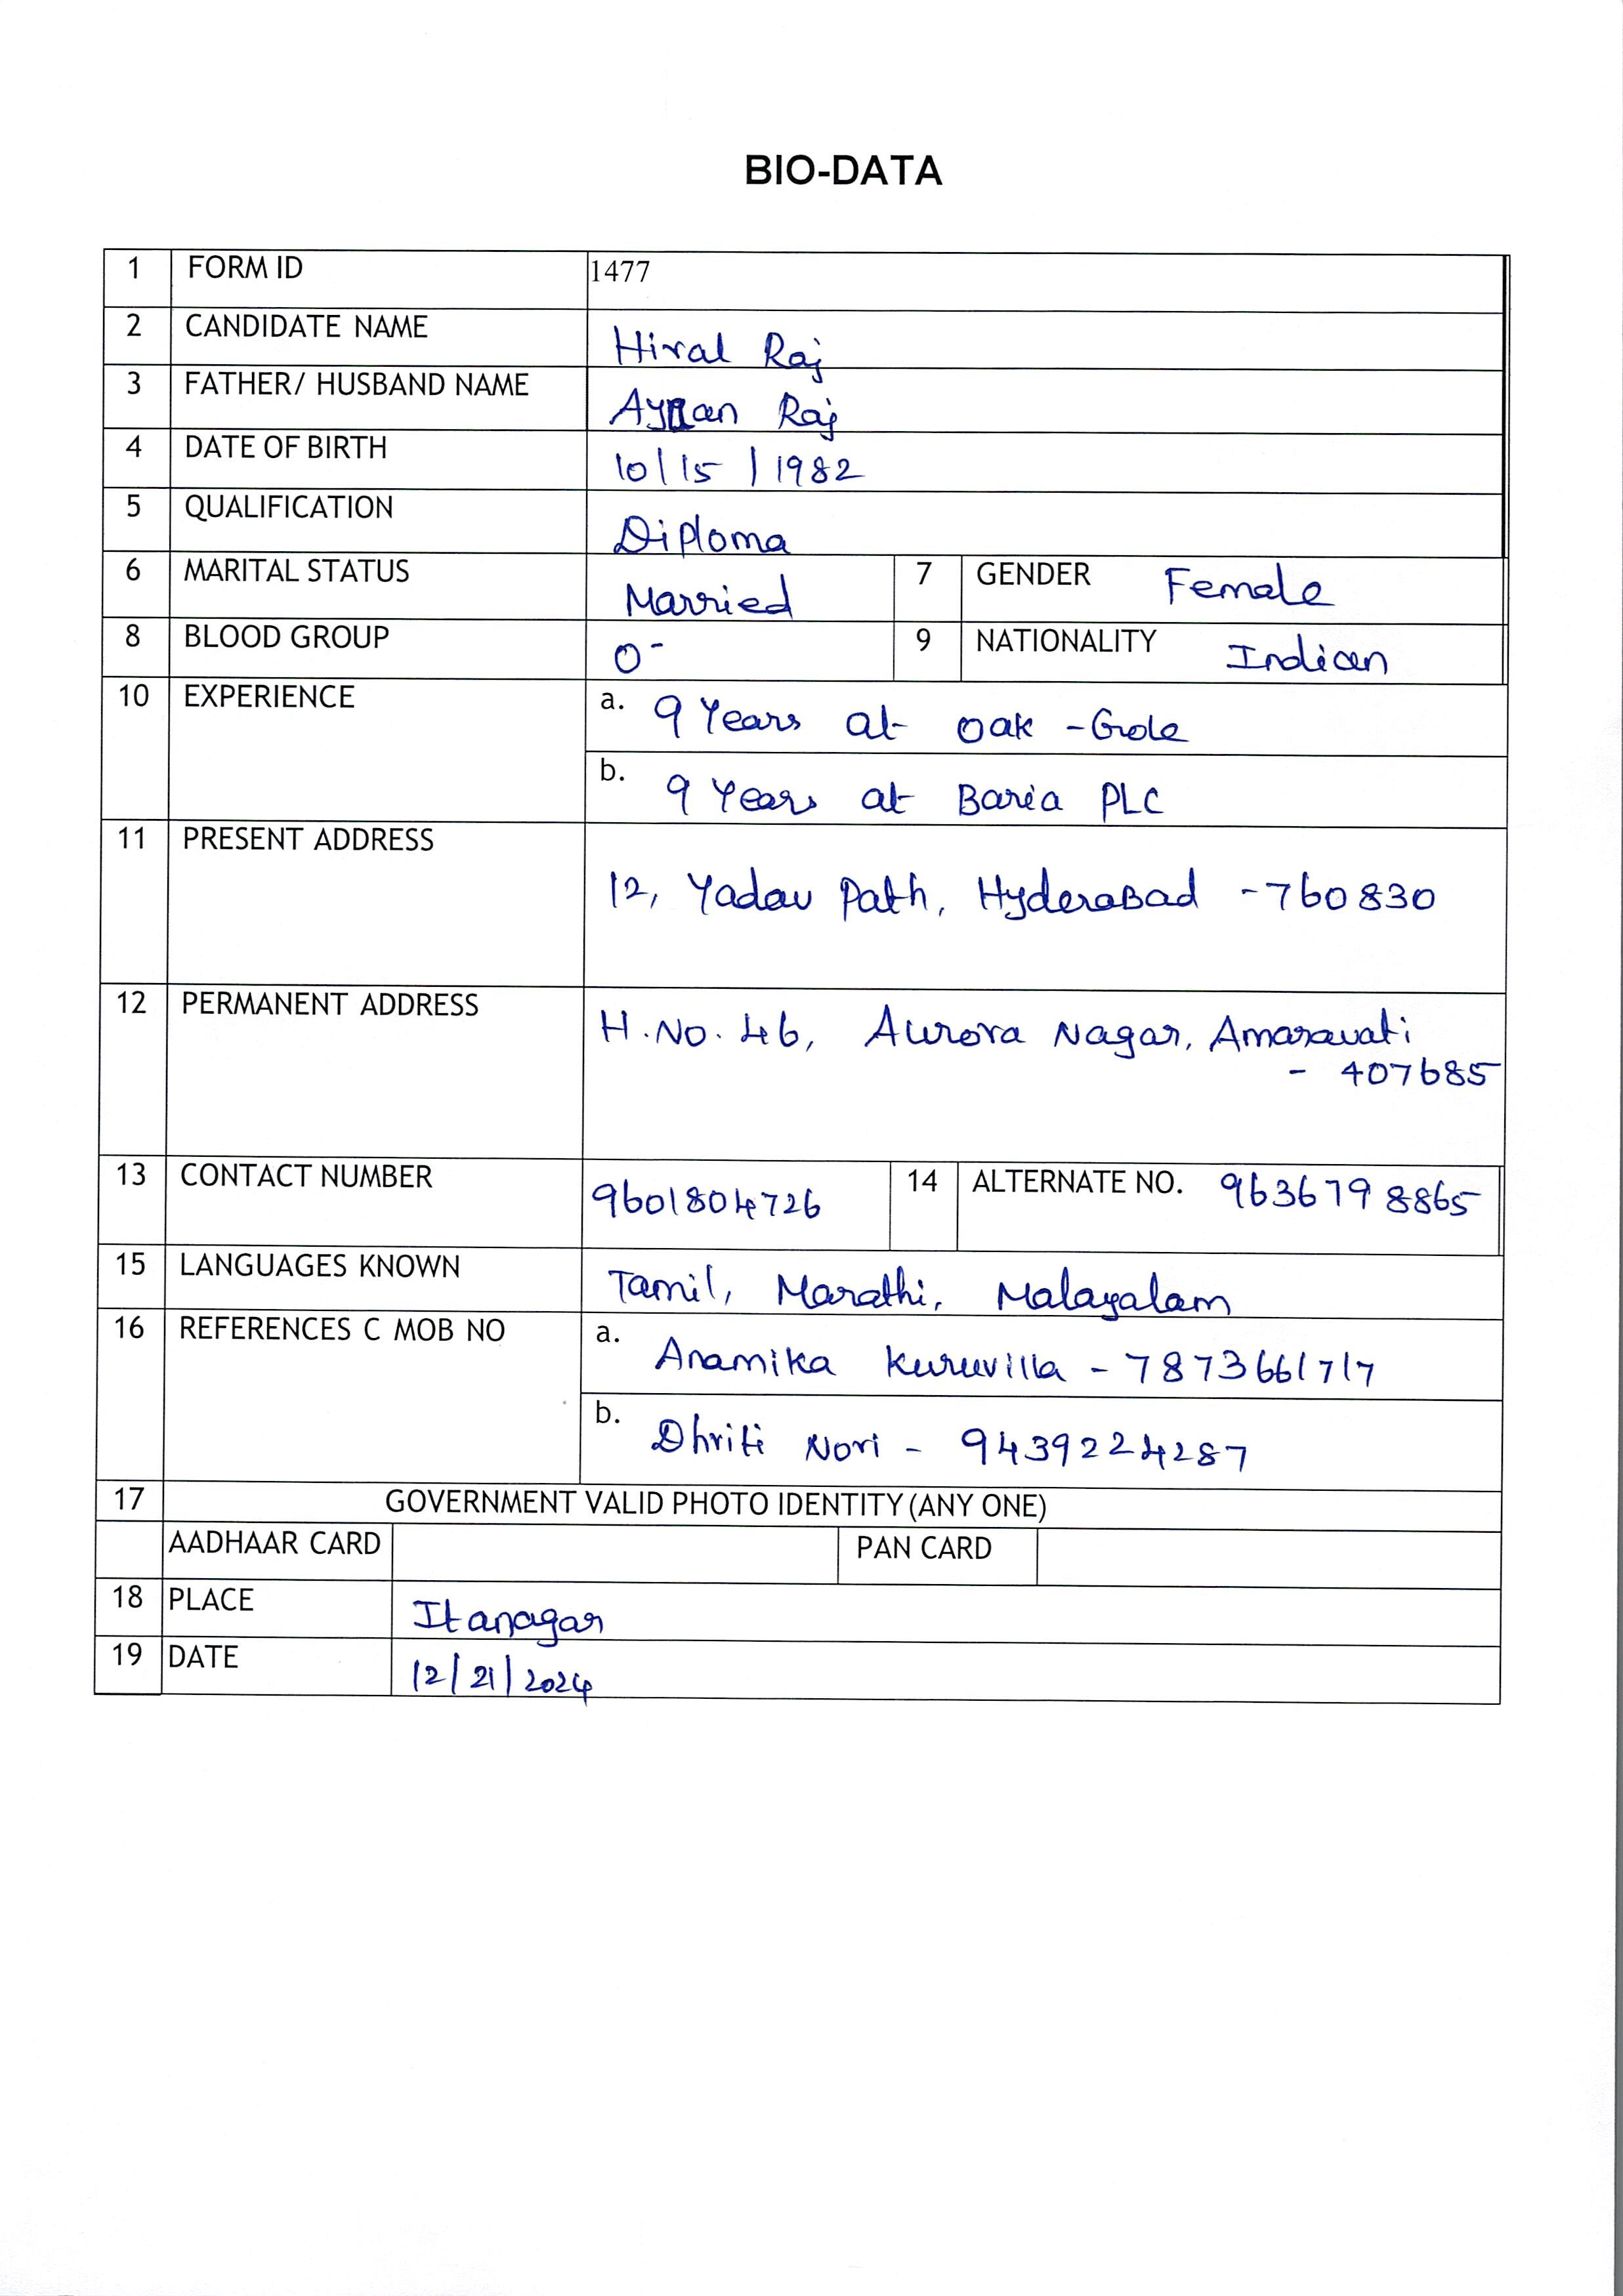 BIO-DATA
1 FORM ID 1477
2 CANDIDATE NAME Hiral Raj
3 FATHER/ HUSBAND NAME Raj
4 DATE OF BIRTH 10/15/1982
5 QUALIFICATION Diploma
6 MARITAL STATUS Married 7 GENDER Female
8 BLOOD GROUP O- 9 NATIONALITY Indian
10 EXPERIENCE a. 9 Years at Oak -Gole
b. 9 Years at Baria PLC
11 PRESENT ADDRESS
12, Yadav Path, Hyderabad -760830
12 PERMANENT ADDRESS H.No. 46, Aurora Nagar, Amaravati
- 407685
13 CONTACT NUMBER 9601804726 14 ALTERNATE NO. 9636798865
15 LANGUAGES KNOWN Tamil, Marathi, Malayalam
16 REFERENCES C MOB NO a. Anamika Kuruvilla - 7873661717
b. Dhriti Nori - 9439224287
17 GOVERNMENT VALID PHOTO IDENTITY (ANY ONE)
AADHAAR CARD PAN CARD
18 PLACE Itanagar
19 DATE 12/21/2024